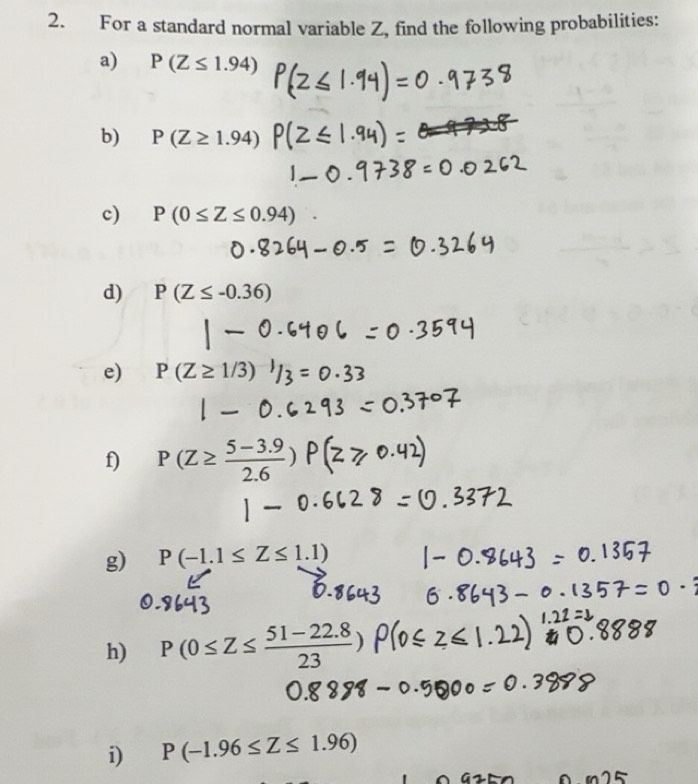 2. For a standard normal variable Z, find the following probabilities:
a) P (Z ≤ 1.94) P(Z ≤ 1.94) = 0.9738
b) P (Z ≥ 1.94) P(Z ≤ 1.94) =
1 - 0.9738 = 0.0262
c) P (0 ≤ Z ≤ 0.94)
0.8264 - 0.5 = 0.3264
d) P (Z ≤ -0.36)
1 - 0.6406 = 0.3594
e) P (Z ≥ 1/3) 1/3 = 0.33
1 - 0.6293 = 0.3707
f) P (Z ≥ (5 – 3.9)/2.6) P(Z ≥ 0.42)
1 - 0.6628 = 0.3372
g) P (–1.1 ≤ Z ≤ 1.1) 1 - 0.8643 = 0.1357
0.8643 0.8643 0.8643 - 0.1357 = 0.
1.22 =
h) P (0 ≤ Z ≤ (51 – 22.8)/23) P(0 ≤ Z ≤ 1.22) 0.8888
0.8888 - 0.5000 = 0.3888
i) P (–1.96 ≤ Z ≤ 1.96)